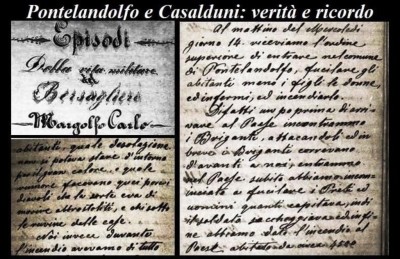 Pontelandolfo e Casalduni: verità e ricordo
Episodi
Della vita militare
Bersagliere
Margolfo Carlo
abitanti, quale desolazione
non si poteva stare d'intorno
pel gran calore, e quale
rumore facevano quei poveri
diavoli che la sorte era di
morire abbrostoliti, e chi sotto
le ruvine delle case.
Noi invece durante
l'incendio avevamo di tutto
Al mattino del Mercoledì
giorno 14, riceviamo l'ordine
superiore di entrare nel comune
di Pontelandolfo, fucilare gli
abitanti meno i figli le donne
ed infermi, ed incendiarlo.
Difatti un po prima di arrivare
al Paese incontrammo
i Briganti, attaccandoli ed in
breve i Briganti correvano
davanti a noi, entrammo
nel Paese subito abbiamo incominciato
a fucilare i Preti ed
uomini quanti capitava, indi
il soldato saccheggiava ed infine
abbiamo dato l'incendio al
Paese abitato da circa 4500